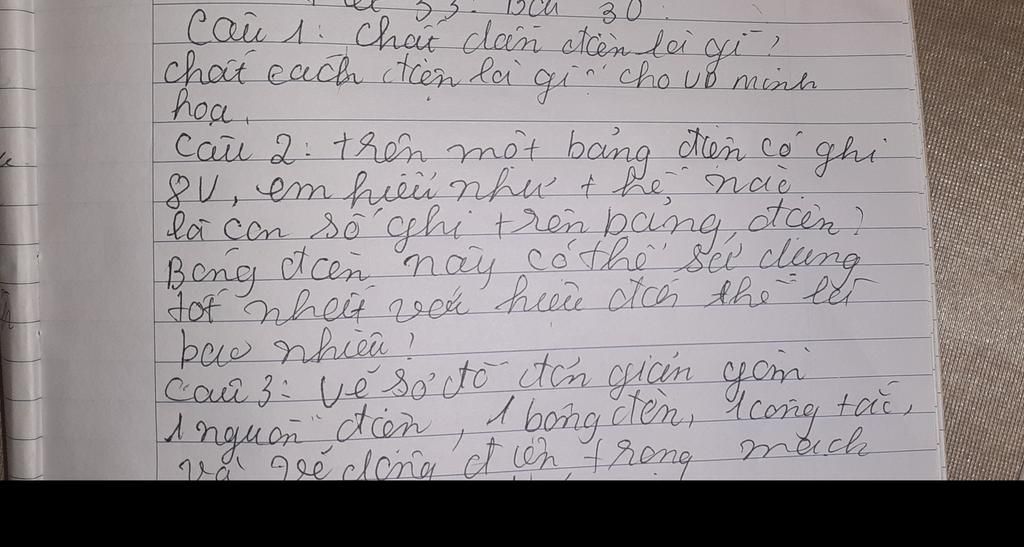 33. Bài 30.
Câu 1: Chất dẫn điện là gì?
chất cách điện là gì cho VD minh
hoạ.
Câu 2: trên một bảng điện có ghi
8V, em hiểu như thế nào
là con số ghi trên bảng điện?
Bóng điện này có thể sử dụng
tốt nhất với hiệu điện thế là
bao nhiêu?
Câu 3: Vẽ sơ đồ đơn giản gồm
1 nguồn điện, 1 bóng đèn, 1 công tắc,
và vẽ dòng điện trong mạch